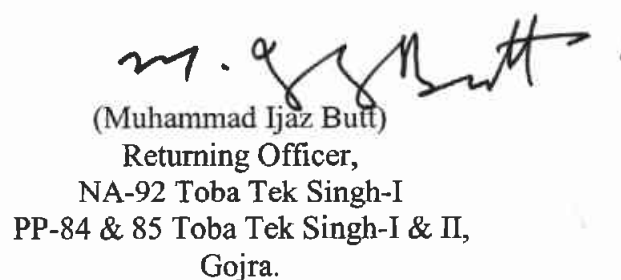 M. Ijaz Butt
(Muhammad Ijaz Butt)
Returning Officer,
NA-92 Toba Tek Singh-I
PP-84 & 85 Toba Tek Singh-I & II,
Gojra.